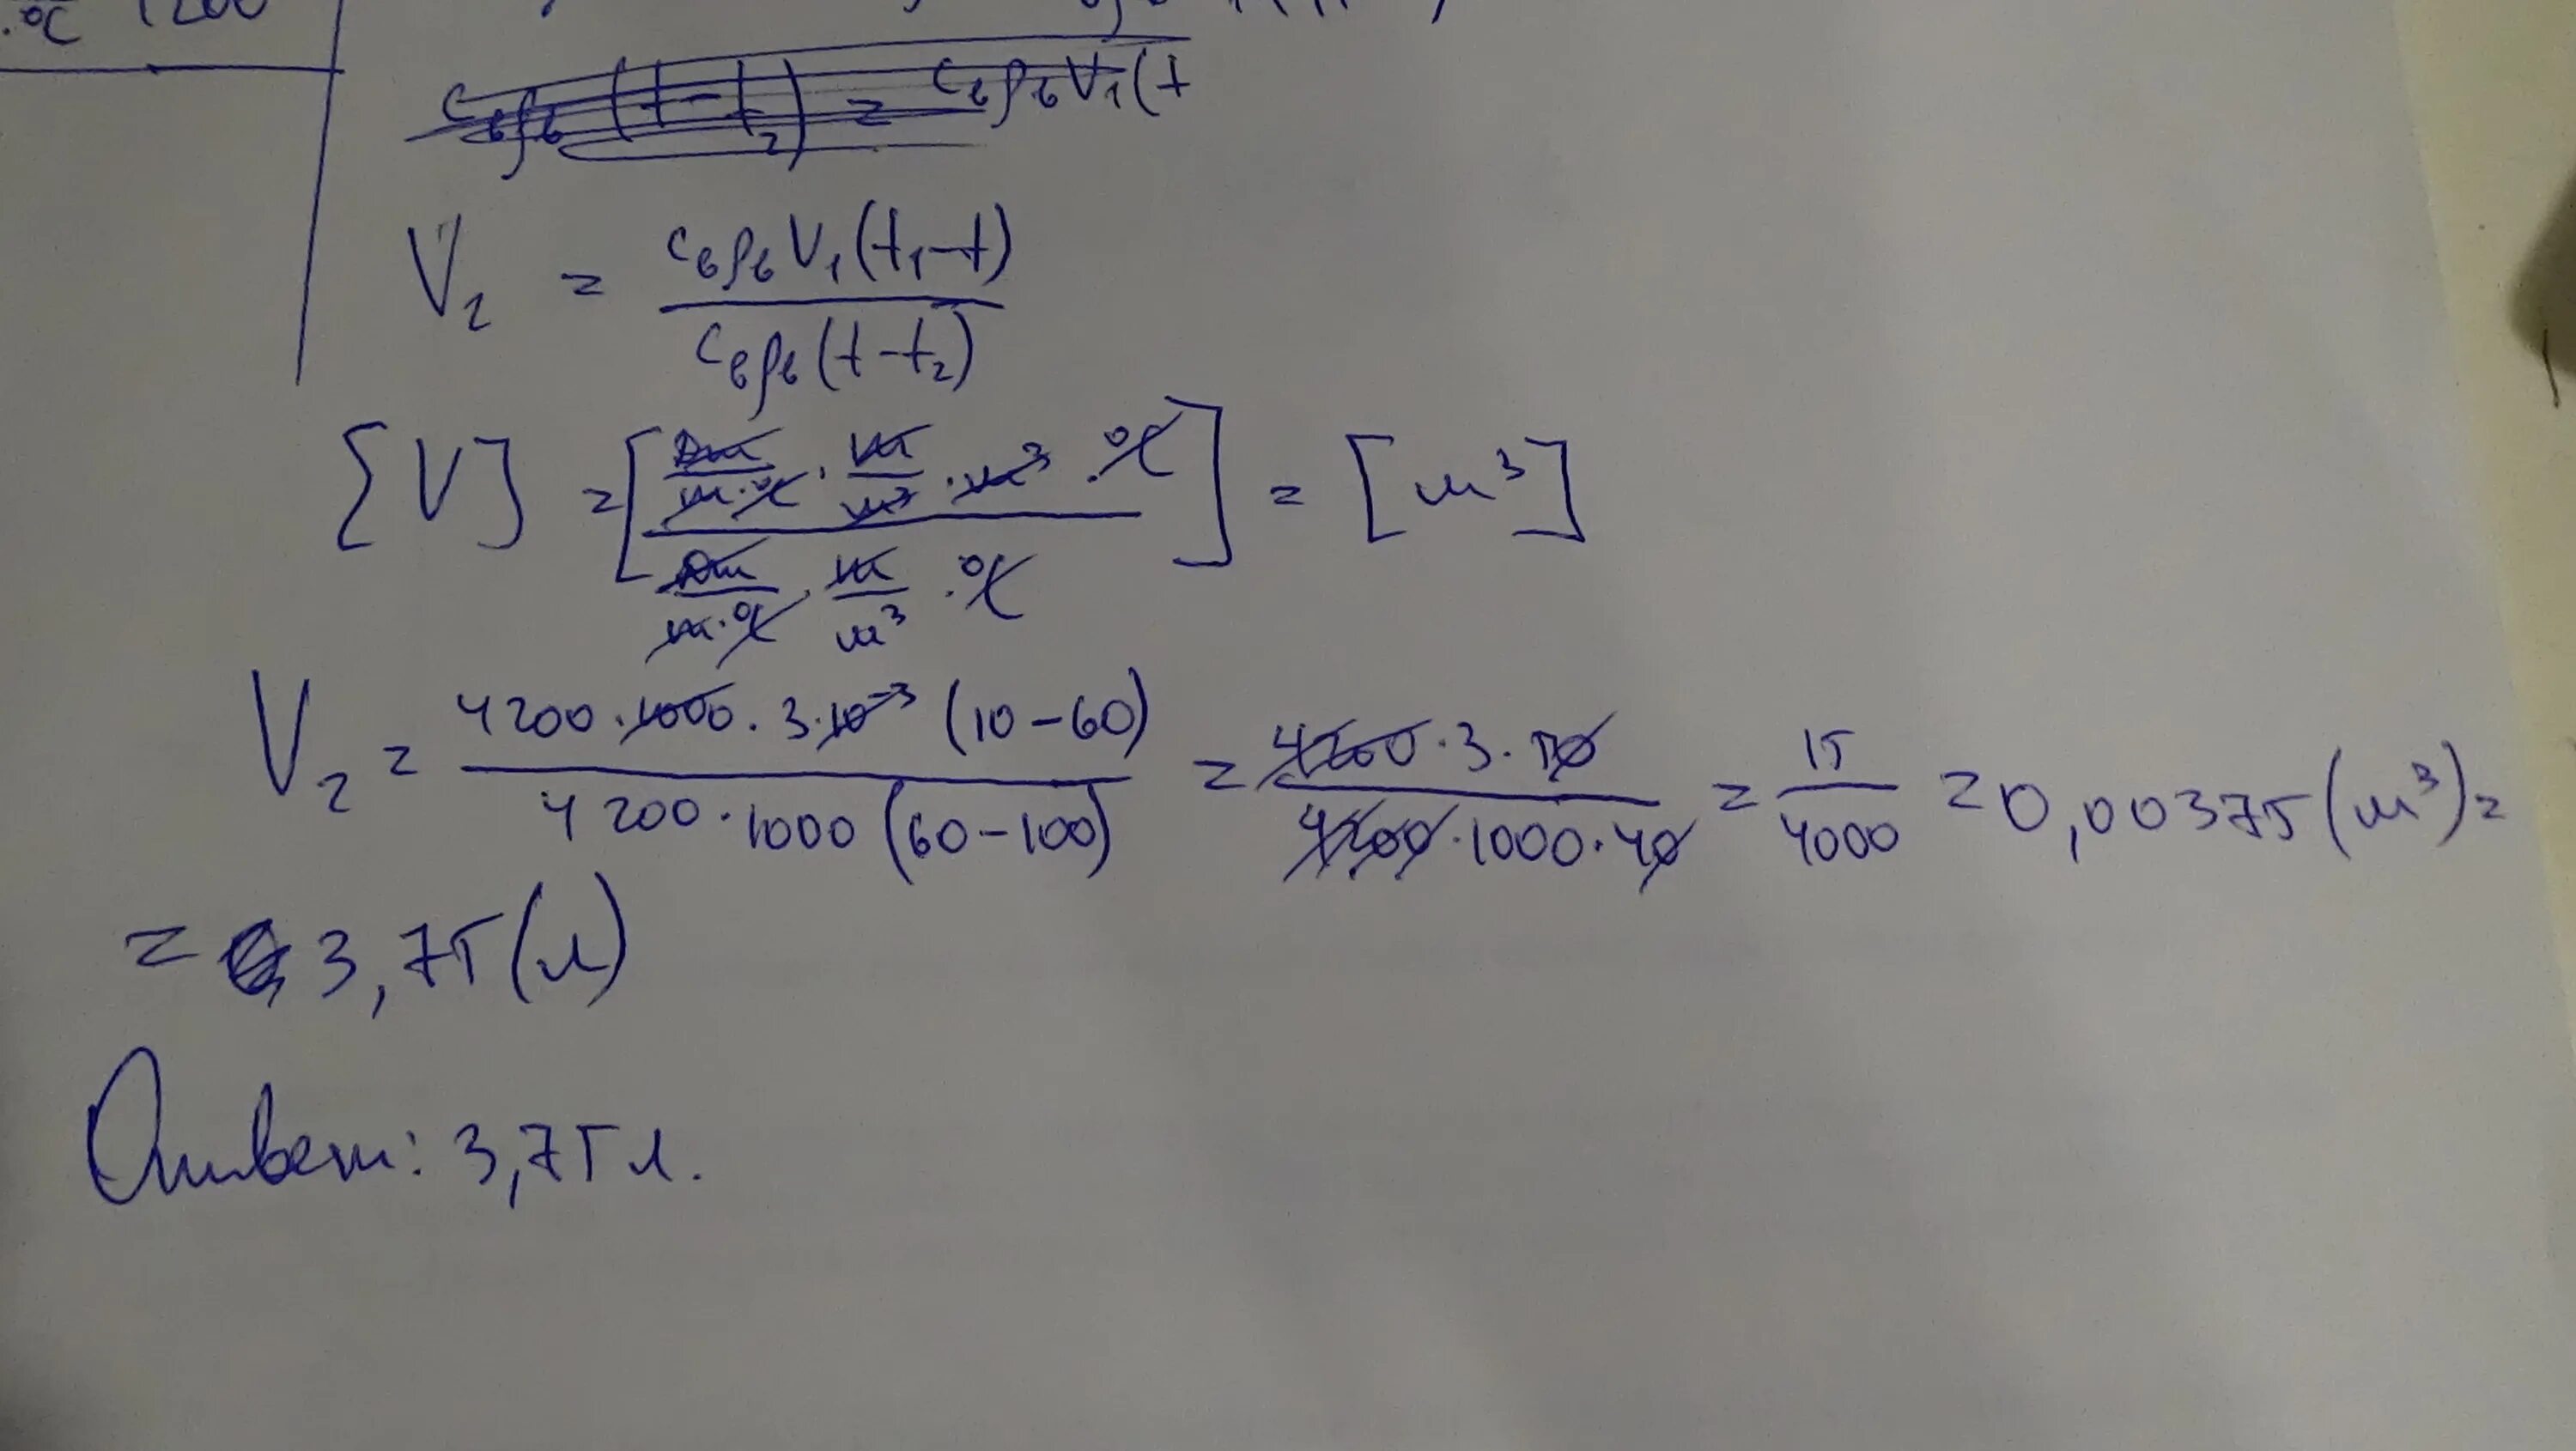 °C 1200
c_вρ_в(t-t₂) = c_вρ_вV₁(t
V₂ = c_вρ_вV₁(t₁-t) / c_вρ_в(t-t₂)
[V] = [Дж/кг·°C · кг/м³ · м³ · °C / Дж/кг·°C · кг/м³ · °C] = [м³]
V₂ = 4200·1000·3·10⁻³(10-60) / 4200·1000(60-100) = 4200·3·50 / 4200·1000·40 = 15/4000 = 0,00375(м³)=
= 3,75(л)
Ответ: 3,75 л.